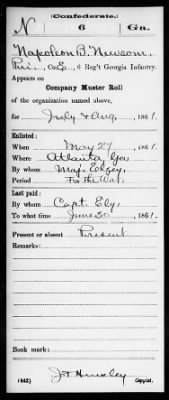 (Confederate.)
N 6 Ga.
Napoleon B. Newsom
Pri., Co. E, 6 Reg't Georgia Infantry.
Appears on
Company Muster Roll
of the organization named above,
for July & Aug, 1861.
Enlisted:
When May 27, 1861.
Where Atlanta Ga,
By whom Maj.
Period For the War,
Last paid:
By whom Capt. Ely,
To what time June 30, 1861.
Present or absent Present
Remarks:
Book mark:
(642) Copyist.